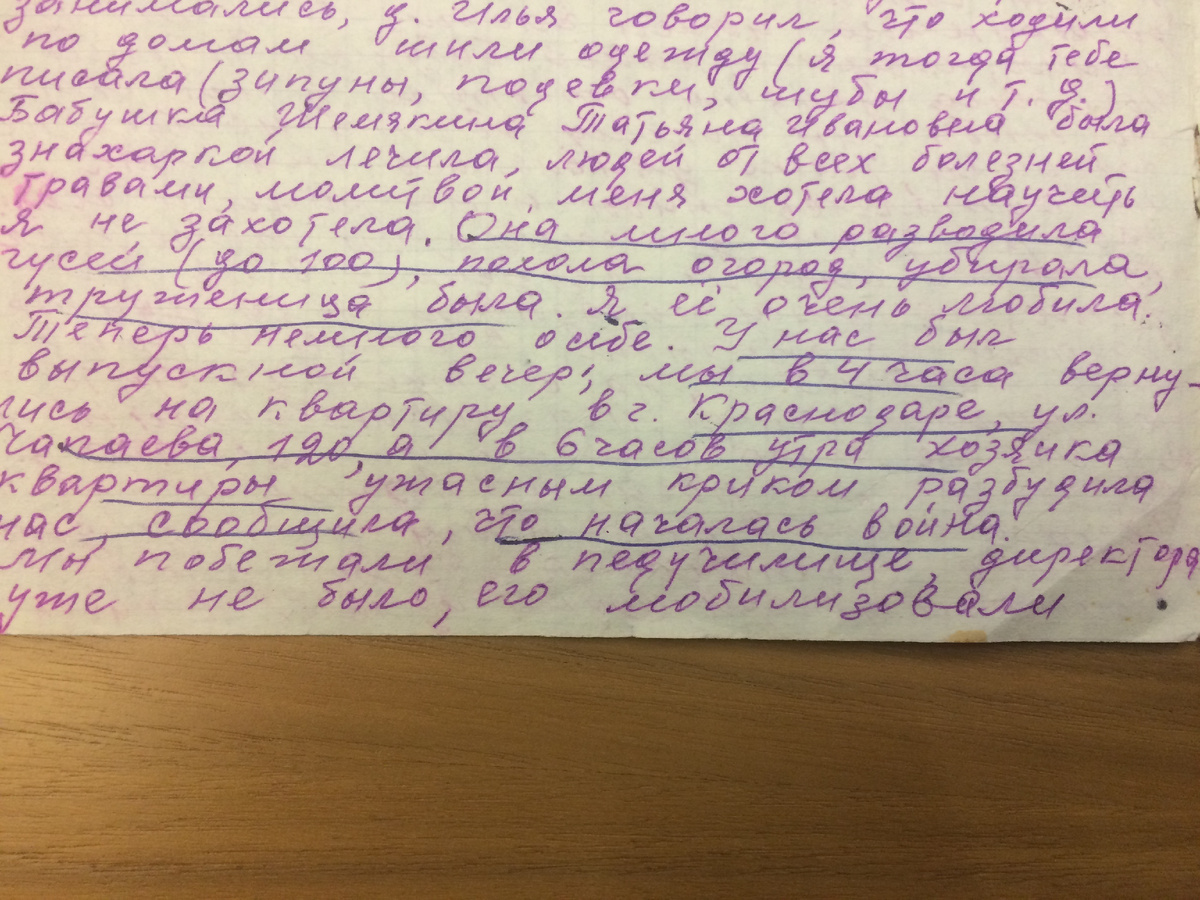 занимались, д. Илья говорил, что ходили
по домам шили одежду (я тогда тебе
писала (зипуны,подевки, шубы и т.д.)
Бабушка Шемякина Татьяна Ивановна была
знахаркой лечила, людей от всех болезней
травами, молитвой, меня хотела научить
я не захотела. Она много разводила
гусей (до 100), полола огород, убирала,
труженица была. Я её очень любила.
Теперь немного о себе. У нас был
выпускной вечер; мы в 4 часа верну-
лись на квартиру в г. Краснодаре, ул.
Чапаева, 120, а в 6 часов утра хозяйка
квартиры ужасным криком разбудила
нас, сообщила, что началась война.
Мы побежали в педучилище, директора
уже не было, его мобилизовали